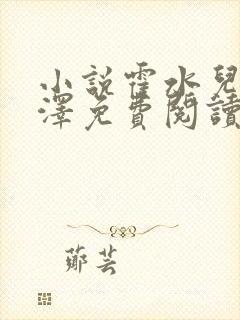 小說霍水兒
澤免費閱讀
鄭芸